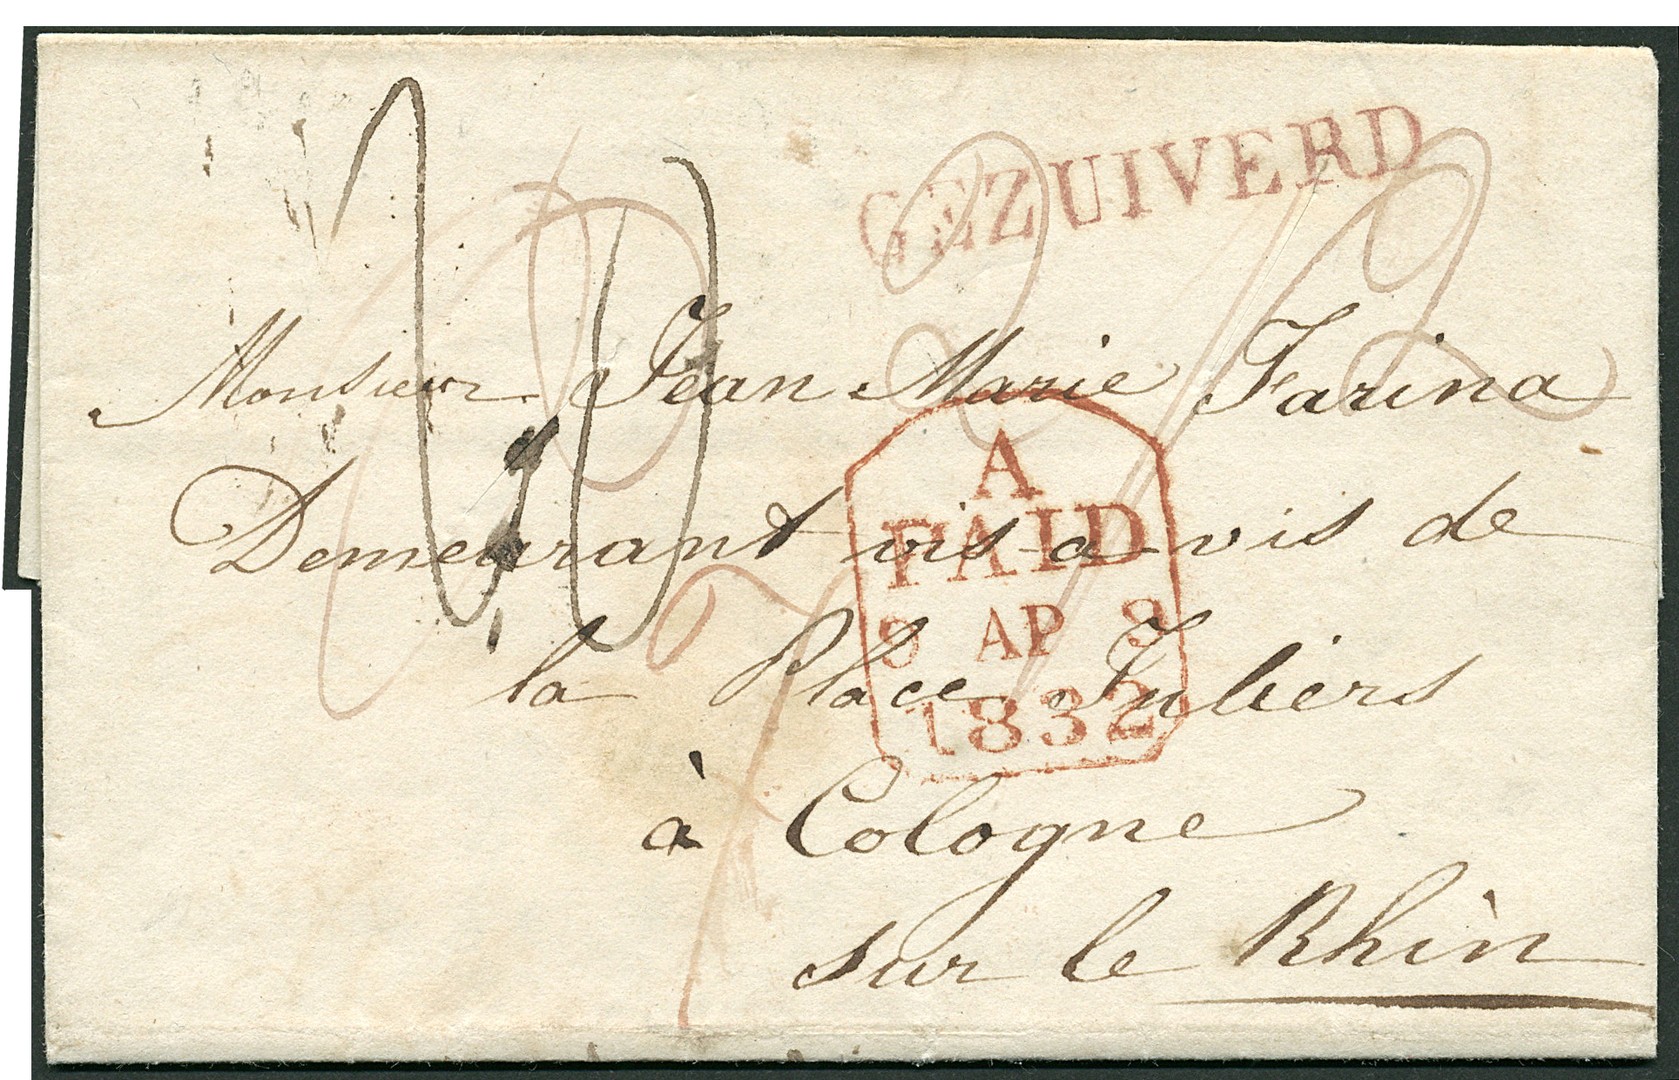 GEZUIVERD
Monsieur Jean Marie Farina
Demeurant vis-a-vis de
la Place Juliers
à Cologne
sur le Rhin
A
PAID
AP
1832